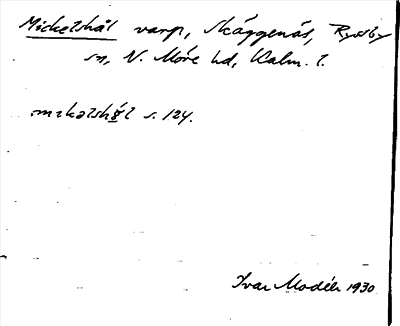 Mickelshål varp, Skäggenäs, Ryssby
sn, N. Möre hd, Kalm. l.
mɩkəlshål s. 124.
Ivar Modéer 1930